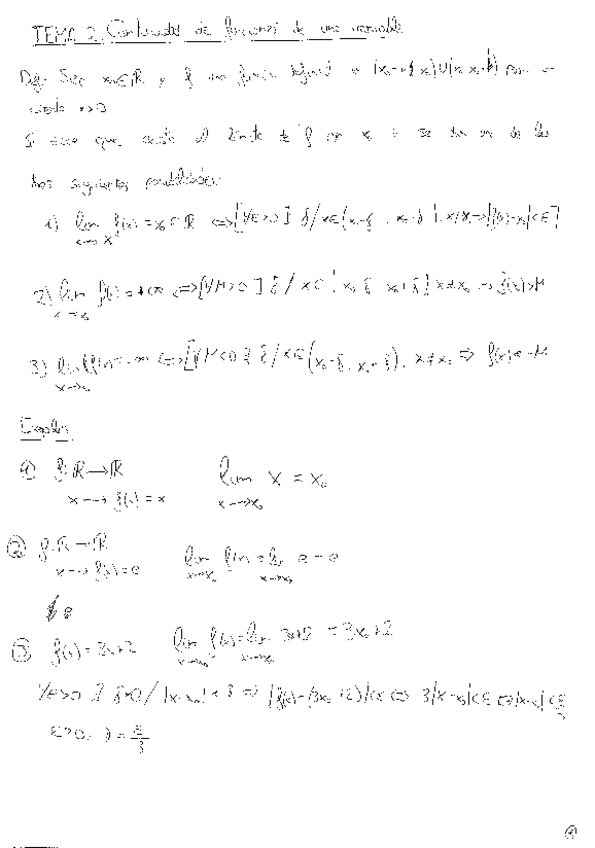 TEMA 2. Continuidad de funciones de una variable
Def: Sea x₀∈ℝ y f una función definida en (x₀-r, x₀)∪(x₀, x₀+r) para un
cierto r>0
Se dice que existe el límite de f en x₀ si se da una de las
tres siguientes posibilidades:
1) lim f(x) = ∈ ℝ ⟺ [∀ε>0 ∃ δ / x∈(x₀-δ, x₀+δ), x≠x₀ ⇒ |f(x)- |<ε]
x→x₀
2) lim f(x) = +∞ ⟺ [∀M>0 ∃ δ / x∈(x₀-δ, x₀+δ) x≠x₀ ⇒ f(x)>M
x→x₀
3) lim f(x) = -∞ ⟺ [∀M<0 ∃ δ / x∈(x₀-δ, x₀+δ), x≠x₀ ⇒ f(x)< M
x→x₀
Ejemplos
① f: ℝ → ℝ lim x = x₀
x → f(x) = x x→x₀
② f: ℝ → ℝ lim f(x) = lim e = e
x → f(x) = e x→x₀ x→x₀
e
③ f(x) = 3x+2 lim f(x) = lim 3x+2 = 3x₀+2
x→x₀ x→x₀
∀ε>0 ∃ δ>0 / |x-x₀|<δ ⇒ |f(x)-(3x₀+2)|<ε ⟺ 3|x-x₀|<ε ⟺ |x-x₀|<ε/3
ε>0, δ = ε/3
①